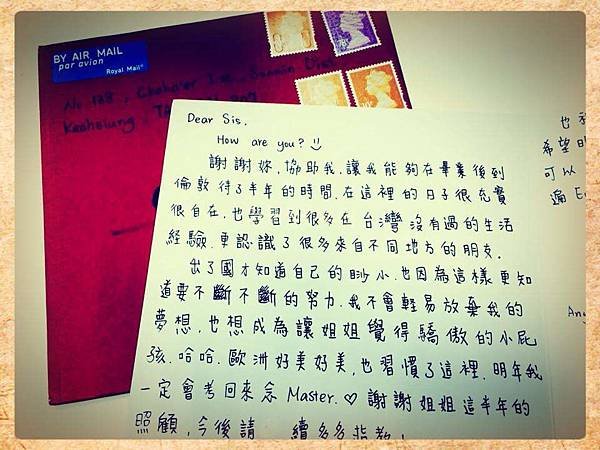 BY AIR MAIL
par avion
Royal Mail
No 188, Chahu'er 1 st, Sanmin Dist
Kaohsiung
Dear Sis,
How are you?
謝謝妳,協助我,讓我能夠在畢業後到
倫敦待了半年的時間,在這裡的日子很充實
很自在,也學習到很多在台灣沒有過的生活
經驗,更認識了很多來自不同地方的朋友.
出了國才知道自己的眇小,也因為這樣更知
道要不斷不斷的努力,我不會輕易放棄我的
夢想,也想成為讓姐姐覺得驕傲的小屁
孩.哈哈.歐洲好美好美,也習慣了這裡.明年我
一定會考回來念 Master.♡ 謝謝姐姐這半年的
照顧,今後請 續多多指教!
也
希望
可以
遍 E